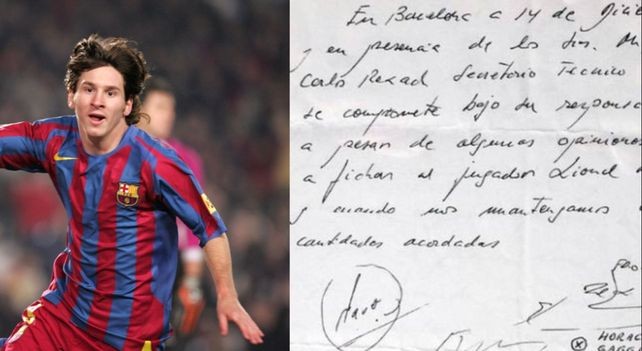 En Barcelona a 14 de Dicie
y en presencia de los Srs. Min
Carlos Rexach Secretario Técnico
se compromete bajo su responsa
a pesar de algunas opiniones
a fichar al jugador Lionel
y cuando nos mantengamos
cantidades acordadas
HORAC
GAGG